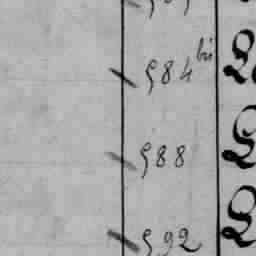 584 bis
588
592